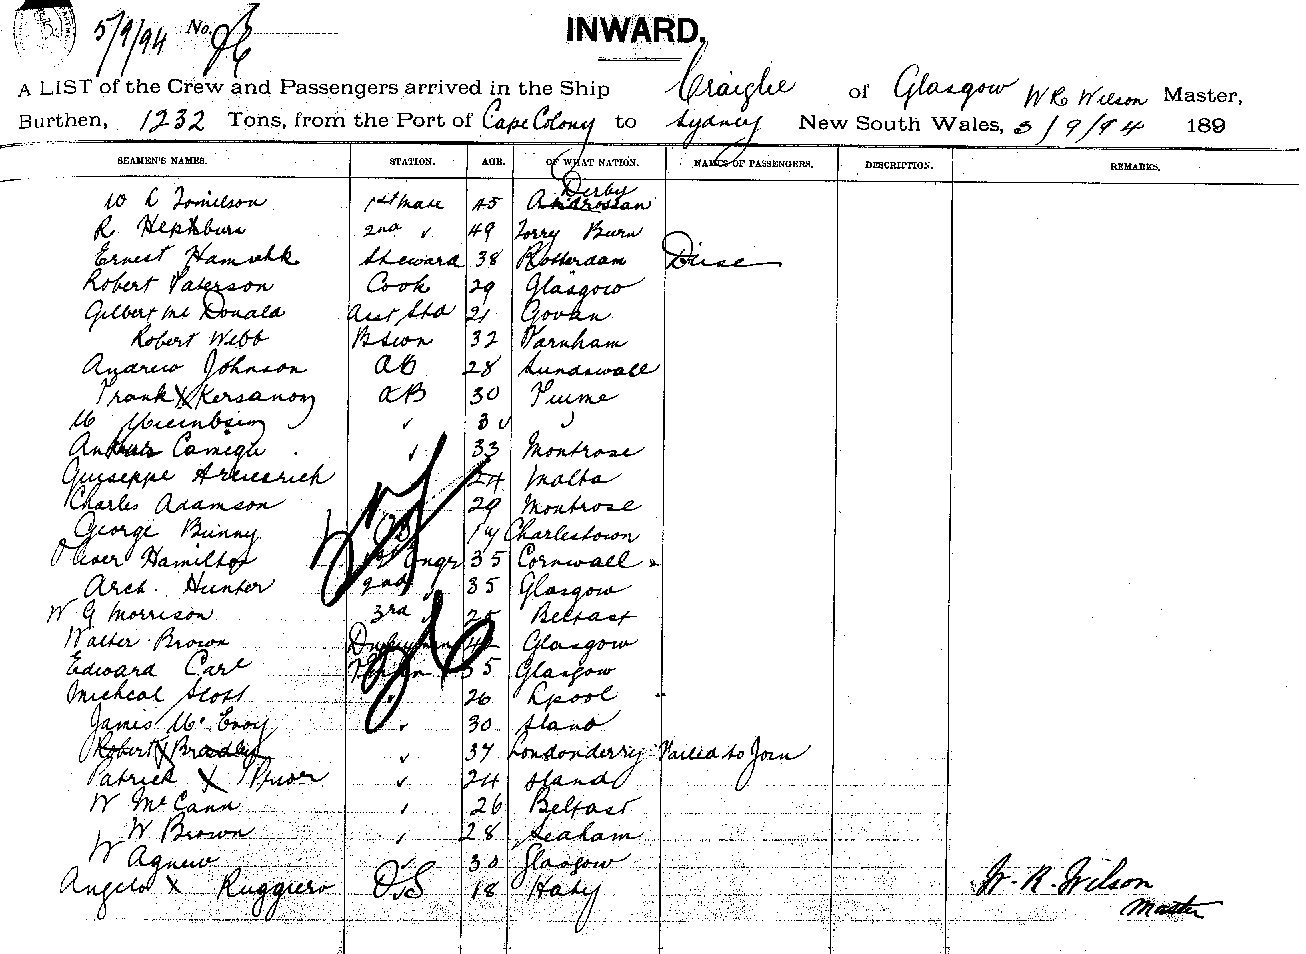 5/9/94 No. 
INWARD.
A LIST of the Crew and Passengers arrived in the Ship Craiglie of Glasgow W R Wilson Master,
Burthen, 1232 Tons, from the Port of Cape Colony to Sydney New South Wales, 3/9/94 189
SEAMEN'S NAMES. STATION. AGE. OF WHAT NATION. NAMES OF PASSENGERS. DESCRIPTION. REMARKS.
Derby
W R Tomilson 1st Mate 45 Androssan
R. Hepkburn 2nd " 49 Torry Burn
Ernest Steward 38 Rotterdam
Robert Paterson Cook 29 Glasgow
Gilbert Mc Donald Asst Std 21 Govan
Robert Webb 32 Farnham
Andrew Johnson AB 28 Sundswall
Frank X AB 30 Fiume
Montrose 33
Guiseppe 24 Malta
Charles Adamson 29 Montrose
George Binny Charlestown
Oliver Hamilton Engr 35 Cornwall
Arch. Hunter 2nd 35 Glasgow
W G Morrison 3rd 25 Belfast
Walter Brown Glasgow
Edward Carl 35 Glasgow
Micheal 26 Lpool
James Mc Evoy 30
Robert X Bradley 37 Londonderry Failed to Join
Patrick X Prior 24
W McCann 26 Belfast
W Brown 28 Seaham
W Agnew 30 Glasgow
Angelo X Ruggiero OS 18 Italy
W. R. Wilson
Master